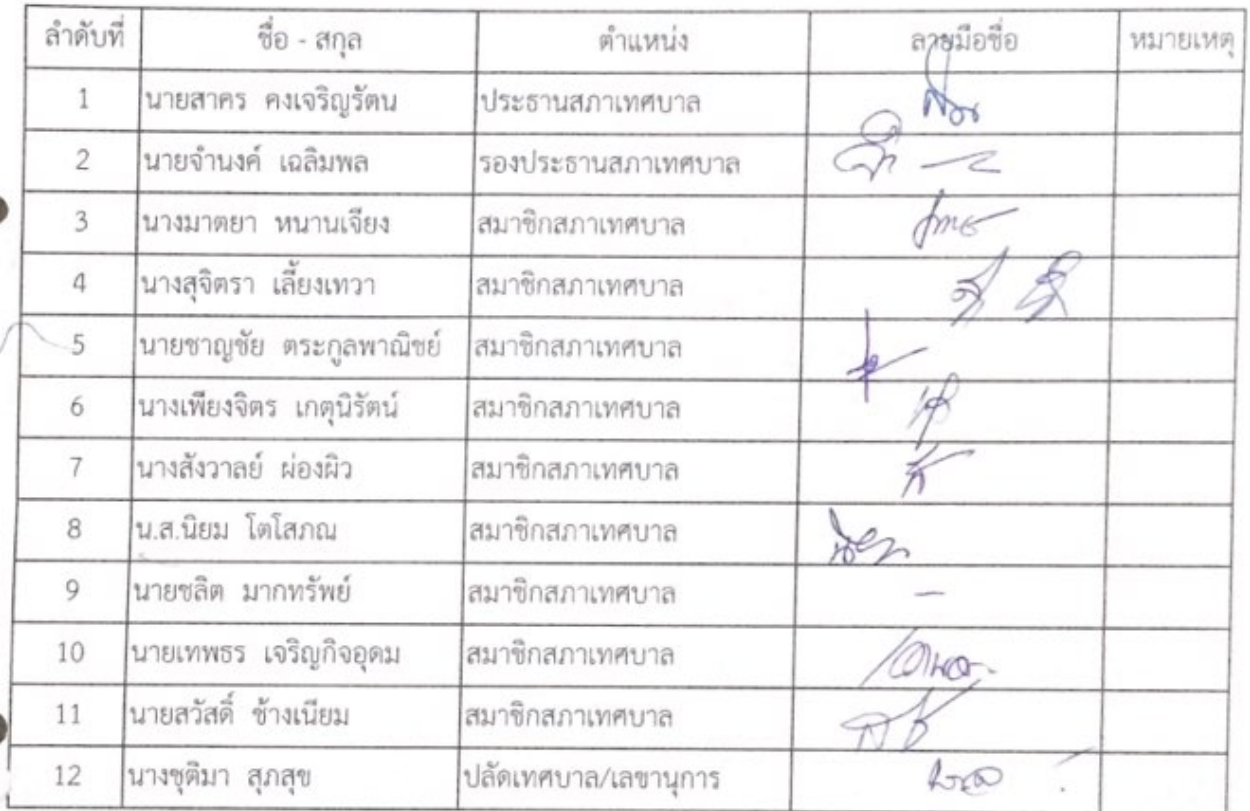 ลำดับที่ ชื่อ - สกุล ตำแหน่ง ลายมือชื่อ หมายเหตุ
1 นายสาคร คงเจริญรัตน ประธานสภาเทศบาล
2 นายจำนงค์ เฉลิมพล รองประธานสภาเทศบาล
3 นางมาตยา หนานเจียง สมาชิกสภาเทศบาล
4 นางสุจิตรา เลี้ยงเทวา สมาชิกสภาเทศบาล
5 นายชาญชัย ตระกูลพาณิชย์ สมาชิกสภาเทศบาล
6 นางเพียงจิตร เกตุนิรัตน์ สมาชิกสภาเทศบาล
7 นางสังวาลย์ ผ่องผิว สมาชิกสภาเทศบาล
8 น.ส.นิยม โตโสภณ สมาชิกสภาเทศบาล
9 นายชลิต มากทรัพย์ สมาชิกสภาเทศบาล -
10 นายเทพธร เจริญกิจอุดม สมาชิกสภาเทศบาล
11 นายสวัสดิ์ ช้างเนียม สมาชิกสภาเทศบาล
12 นางชุติมา สุภสุข ปลัดเทศบาล/เลขานุการ